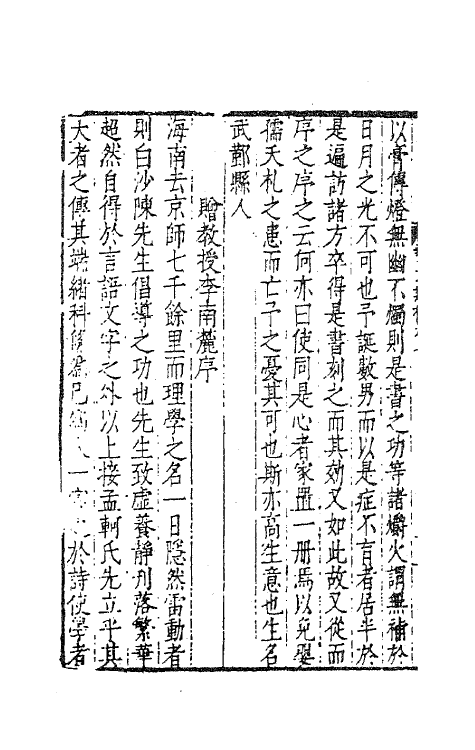 以膏傳燈無幽不燭則是書之功等諸爝火謂無補於
日月之光不可也予誕數男而以是症不育者居半於
是遍訪諸方卒得是書刻之而其効又如此故又從而
序之序之云何亦曰使同是心者家置一册焉以免嬰
孺夭札之患而亡予之憂其可也斯亦高生意也生名
武鄞縣人
贈教授李南麓序
海南去京師七千餘里而理學之名一日隱然雷動者
則白沙陳先生倡導之功也先生致虛養靜刋落繁華
超然自得於言語文字之外以上接孟軻氏先立乎其
大者之傳其端緒科級爲已 一 於詩使學者